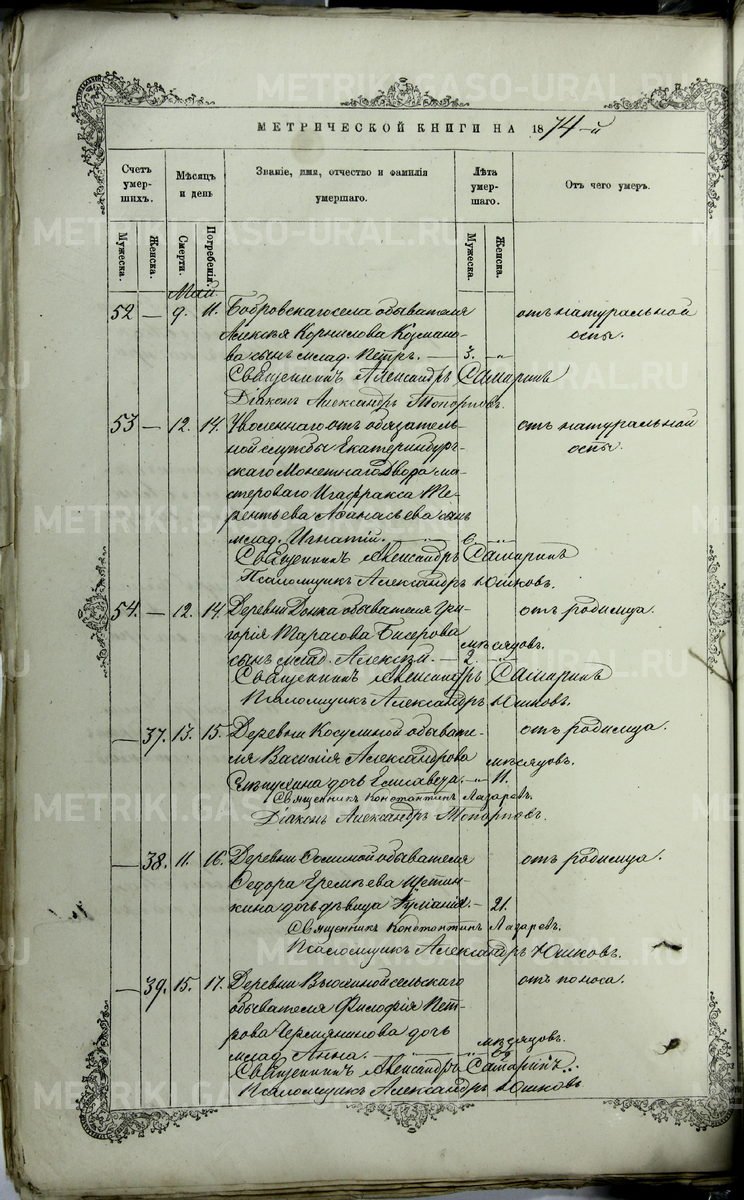 METRIKI.GASO-URAL.RU
МЕТРИЧЕСКОЙ КНИГИ НА 1874-й
Счетъ умершихъ.
Мѣсяцъ и день
Званіе, имя, отчество и фамилія умершаго.
Лѣта умершаго.
Отъ чего умеръ.
Мужеска. Женска. Смерти. Погребенія. Мужеска. Женска.
Май.
52 — 9. 11. Бобровскаго села обывателя отъ натуральной
Алексѣя Корнилова Кузмино- оспы.
ва сынъ млад. Петръ. — 3. „
Священникъ Александръ Самаринъ
Діаконъ Александръ Топорковъ.
53 — 12. 14. Уволеннаго отъ обязатель- отъ натуральной
ной службы Екатеринбург- оспы.
скаго Монетнаго Двора ма-
стероваго Ме-
рентьева Афанасьева сынъ
млад. Игнатій. „ 6. „
Священникъ Александръ Самаринъ
Псаломщикъ Александръ Юшковъ.
54. — 12. 14. Деревни обывателя Гри- отъ родимца.
горія Тарасова Бисерова мѣсяцовъ.
сынъ млад. Алексѣй. — 2. „
Священникъ Александръ Самаринъ
Псаломщикъ Александръ Юшковъ.
— 37. 13. 15. Деревни Косулиной обывате- отъ родимца.
ля Василія Александрова мѣсяцовъ.
дочь Елисавета. „ 11.
Священникъ Константинъ Лазаревъ.
Діаконъ Александръ Топорковъ.
— 38. 11. 16. Деревни обывателя отъ родимца.
Ѳедора Еремѣева Щетин-
кина дочь дѣвица — 21.
Священникъ Константинъ Лазаревъ.
Псаломщикъ Александръ Юшковъ.
— 39. 15. 17. Деревни сельскаго отъ поноса.
обывателя Филофія Пет-
рова Чермянинова дочь мѣсяцовъ.
млад. Анна. „
Священникъ Александръ Самаринъ.
Псаломщикъ Александръ Юшковъ